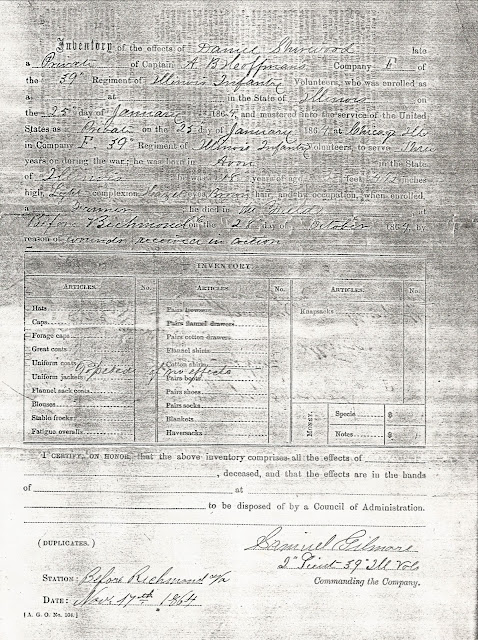 Inventory of the effects of Daniel Sherwood late
a Private of Captain A B Hoffmans Company E of
the 39" Regiment of Illinois Infantry Volunteers, who was enrolled as
a at in the State of Illinois on
the 25" day of January 1864, and mustered into the service of the United
States as a Private on the 25 day of January 1864, at Chicago Ills
in Company E 39" Regiment of Illinois Infantry Volunteers, to serve Three
years or during the war; he was born in Avon in the State
of Illinois he was 18 years of age, 5 feet inches
high, Light complexion, Hazel eyes, Brown hair, and by occupation, when enrolled,
a Farmer he died in the Field at
Before Richmond on the 28 day of October 1864, by
reason of wounds received in action
INVENTORY.
ARTICLES. No. ARTICLES. No. ARTICLES. No.
Hats
Caps
Forage caps
Great coats
Uniform coats
Uniform jackets
Flannel sack coats
Blouses
Stable frocks
Fatigue overalls
Pairs trousers
Pairs flannel drawers
Pairs cotton drawers
Flannel shirts
Cotton shirts
Pairs boots
Pairs shoes
Pairs socks
Blankets
Haversacks
Knapsacks
of no effects
MONEY.
Specie $
Notes $
I CERTIFY, ON HONOR, that the above inventory comprises all the effects of
, deceased, and that the effects are in the hands
of at
to be disposed of by a Council of Administration.
(DUPLICATES.)
Samuel Gilmore
2" Lieut 39" Ill Vols
Commanding the Company.
STATION: Before Richmond Va
DATE: Nov. 17th 1864
[A. G. O. No. 104.]